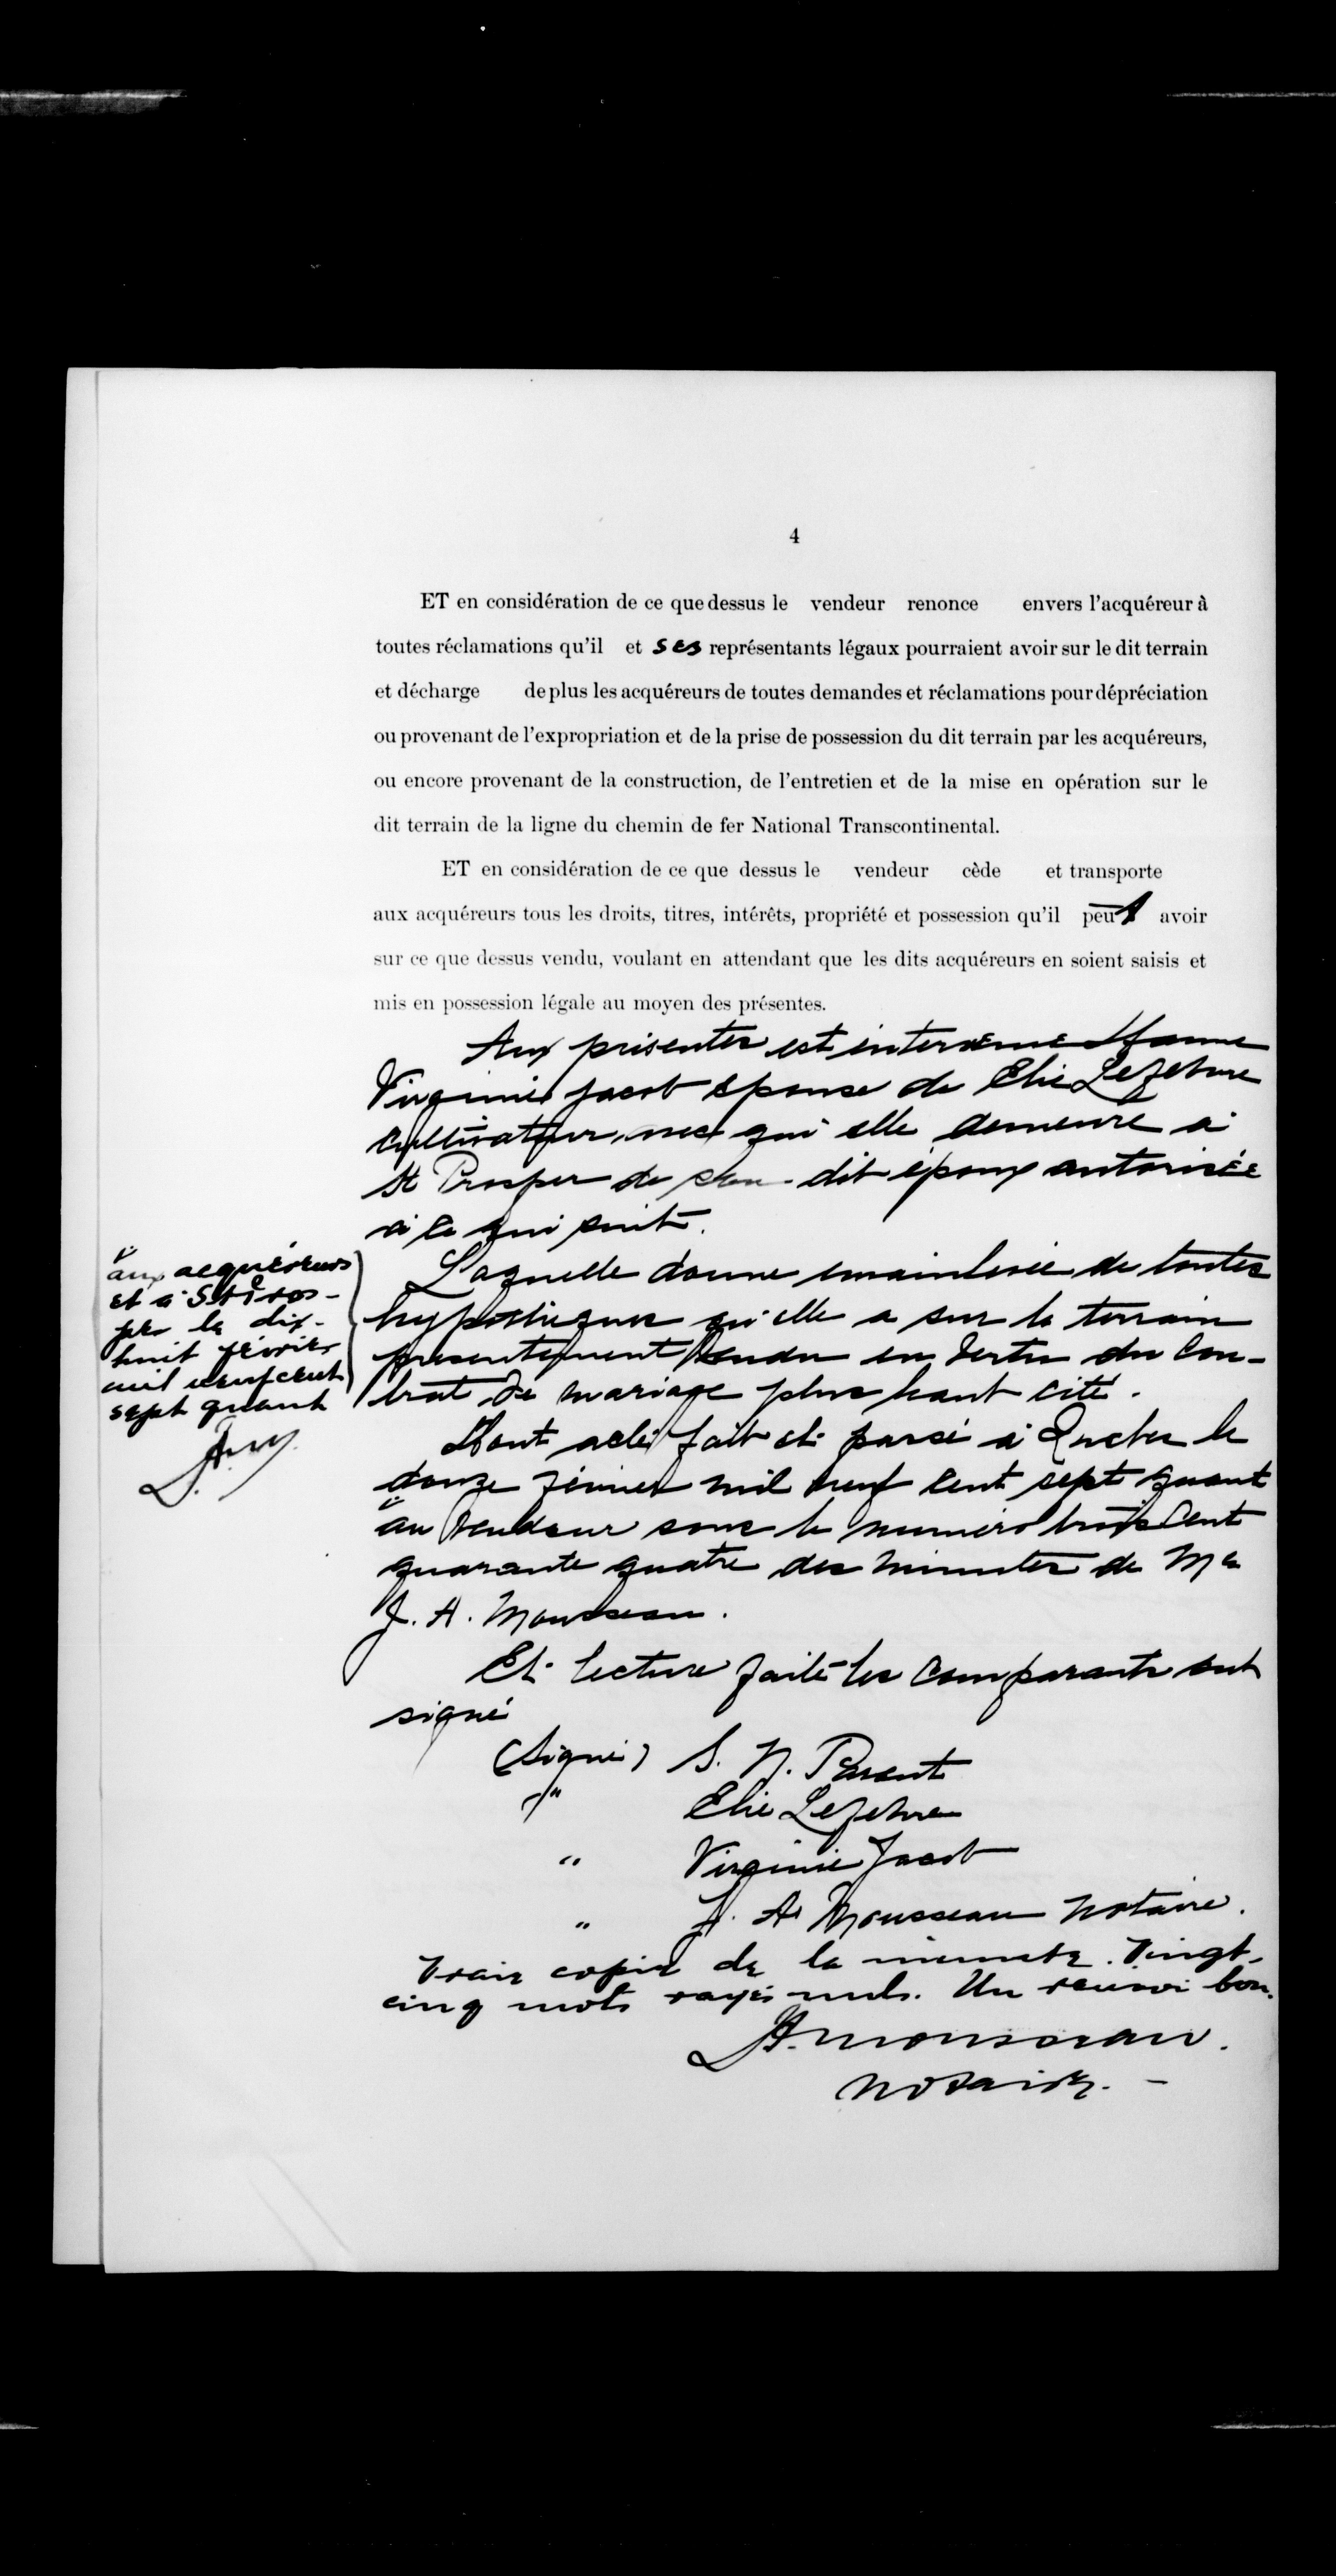 4
ET en considération de ce que dessus le vendeur renonce envers l'acquéreur à
toutes réclamations qu'il et ses représentants légaux pourraient avoir sur le dit terrain
et décharge de plus les acquéreurs de toutes demandes et réclamations pour dépréciation
ou provenant de l'expropriation et de la prise de possession du dit terrain par les acquéreurs,
ou encore provenant de la construction, de l'entretien et de la mise en opération sur le
dit terrain de la ligne du chemin de fer National Transcontinental.
ET en considération de ce que dessus le vendeur cède et transporte
aux acquéreurs tous les droits, titres, intérêts, propriété et possession qu'il peut avoir
sur ce que dessus vendu, voulant en attendant que les dits acquéreurs en soient saisis et
mis en possession légale au moyen des présentes.
Aux présentes est intervenue
Virginie Jacob épouse de Elie Lefebvre
cultivateur, avec qui elle demeure à
St Prosper de son dit époux autorisée
à ce qui suit.
Laquelle donne mainlevée de toutes
hypothèques qu'elle a sur le terrain
présentement vendu en vertu du con-
trat de mariage plus haut cité.
aux acquéreurs
et à St Pros-
per le dix-
huit février
mil neuf cent
sept quant
Dont acte fait et passé à Québec le
douze février mil neuf cent sept quant
au vendeur sous le numéro trois cent
quarante quatre des minutes de Me
J. A. Mousseau.
Et lecture faite les comparants ont
signé
(Signé) S. N. Parent
" Elie Lefebvre
" Virginie Jacob
" J. A. Mousseau Notaire.
Vraie copie de la minute. Vingt-
cinq mots rayés nuls. Un renvoi bon.
J.A. Mousseau.
Notaire. -